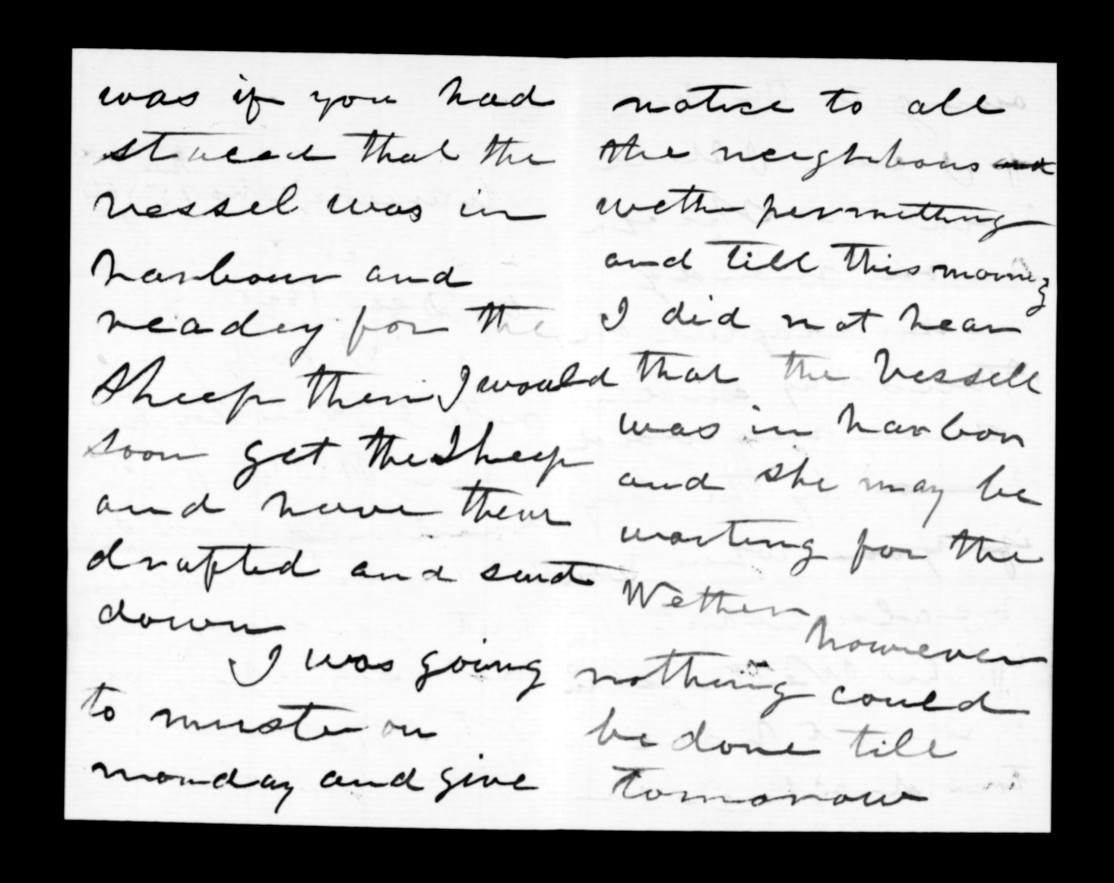 was if you had
staeed that the
vessel was in
harbour and
readey for the
Sheep then I would
soon get the Sheep
and have them
drafted and send
down
I was going
to muste on
monday and give
notice to all
the neighbours and
wethe permitting
and till this morning
I did not hear
that the Vessell
was in harbor
and she may be
waiting for the
Wether however
nothing could
be done till
tomorow